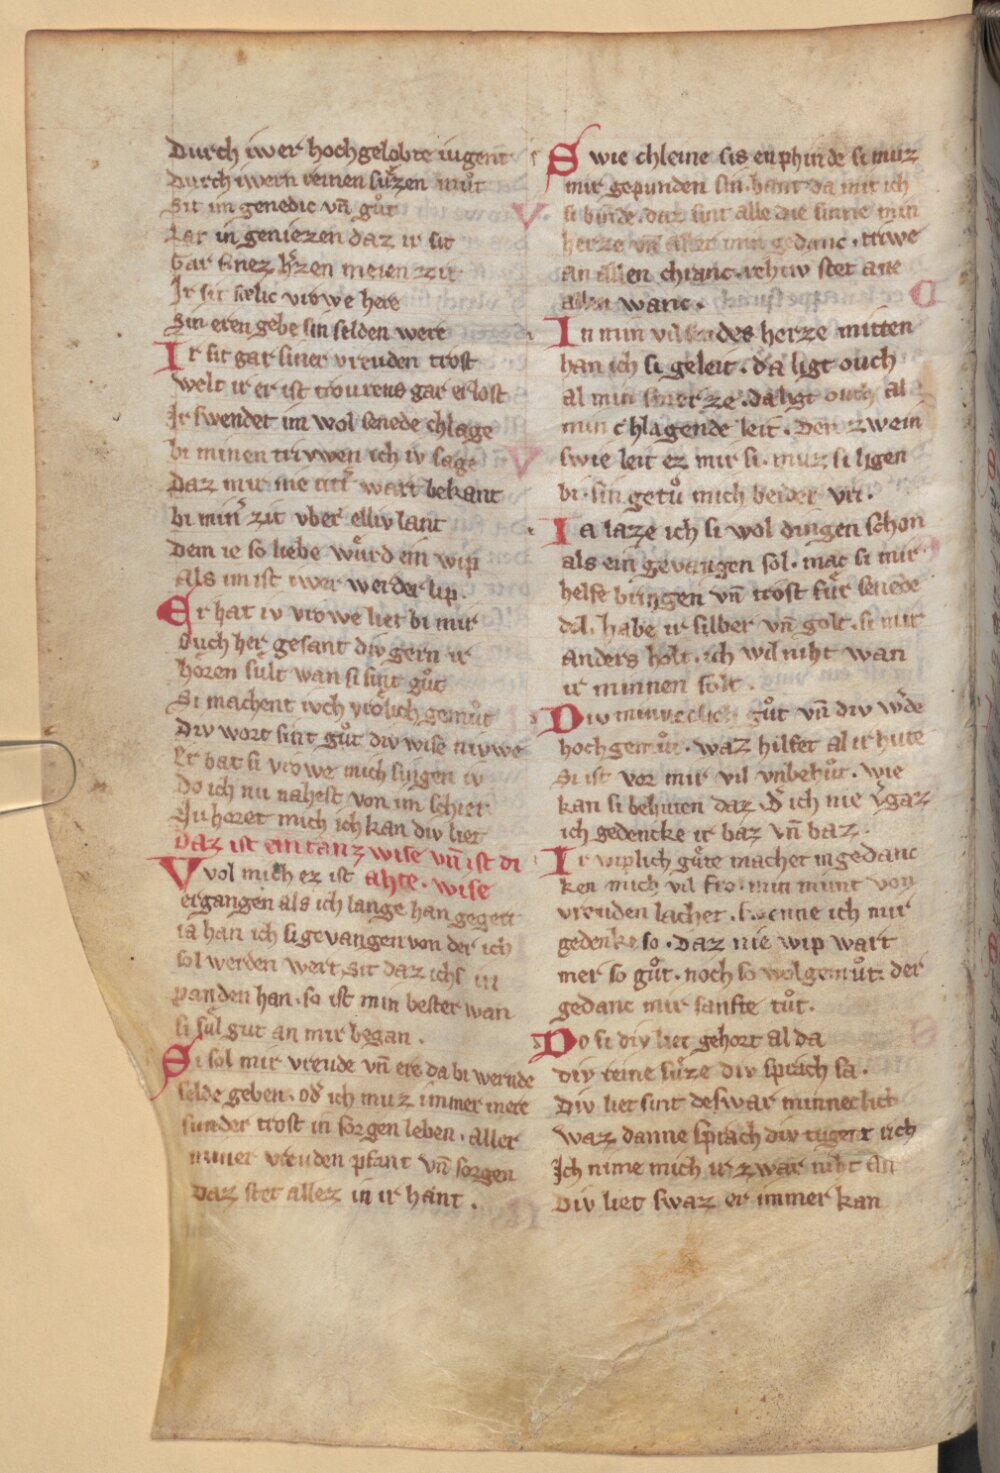 Durch iwer hochgelobte iugent
Durch iwern reinen sůzen můt
Sit im genedic vñ gůt
Lat in geniezen daz ir sit
Gar sinez h̾zen meien zit
Ir sit sælic vrowe here
Sin eren gebe sin selden were
Ir sit gar siner vreuden trost
Welt ir er ist trourens gar erlost
Ir swendet im wol senede chlage
bi minen trivwen ich iv sage
Daz mir nie ritt̾ wart bekant
bi min̾ zit vber elliv lant
Dem ie so liebe wůrd ein wip
als im ist iwer werder lip.
Er hat iv vrowe liet bi mir
Ouch her gesant div gern ir
horen sůlt wan si sint gůt
Si machent ivch vrölich gemůt
Div wort sint gůt div wise nivwe
Er bat si vrowe mich singen iv
do ich nu nahest von im schier
Nu horet mich ich kan div liet
Daz ist ein tanz wise vñ ist di
Vvol mich ez ist ahte. wise
ergangen als ich lange han gegert
ia han ich si gevangen von der ich
sol werden wert, Sit daz ichs in
panden han. so ist min bester wan
si sůl gut an mir began.
Si sol mir vreude vñ ere da bi wernde
selde geben. od̾ ich muz immer mere
sunder trost in sorgen leben. aller
miner vreuden pfant vñ sorgen
daz stet allez in ir hant.
Swie chleine sis enphinde si muz
mir gepunden sin. bant da mit ich
si binde. daz sint alle die sinne min
herze vñ aller min gedanc. triwe
an allen chranc. rehiv stet ane
allen wanc.
In min vil des herze mitten
han ich si geleit. da ligt ouch
al min smerze. da ligt ouch al
min chlagende leit. Den zwein
swie leit ez mir si. muz si ligen
bi. sin getů mich beider vri.
Ia laze ich si wol dingen schon
als ein gevangen sol. mac si mir
helfe bringen vñ trost fůr senede
dol. habe ir silber vñ golt. si mir
anders holt. ich wil niht wan
ir minnen solt.
Div minneclich gůt vñ div w̾de
hochgemůt. waz hilfet al ir hute
Si ist vor mir vil vnbehůt. wie
kan si behuten daz. d̾ ich nie v̾gaz
ich gedencke ir baz vñ baz.
Ir wiplich gůte machet in gedanc
ken mich vil fro. min munt von
vreuden lachet. swenne ich mir
gedenke so. Daz nie wip wart
mer so gůt. noch so wolgemůt: der
gedanc mir sanfte tůt.
Do si div liet gehort al da
div reine sůze div sprach sa.
Div liet sint deswar minneclich
waz danne sprach div tugent rich
Ich nime mich ir zwar niht an
Div liet swaz er immer kan